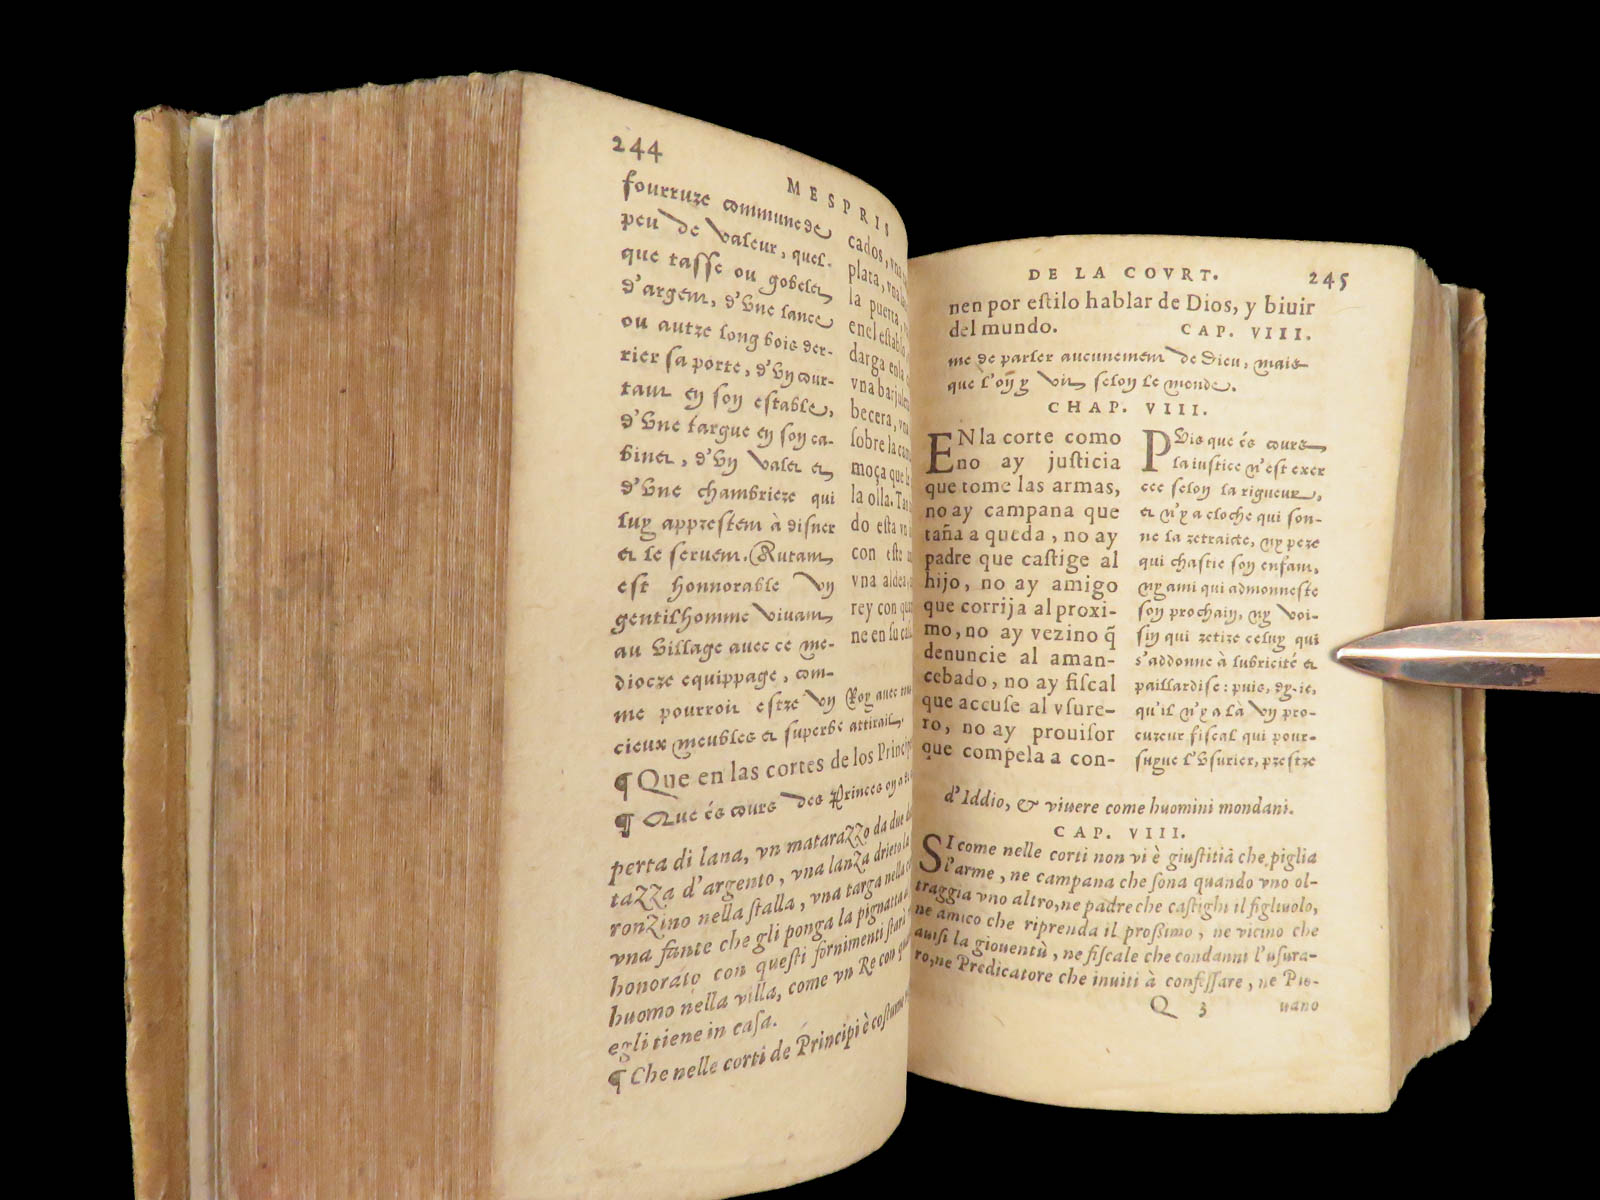 244
MESPRIS
fourruze commune de
peu de valeur, quel-
que tasse ou gobelet
d'argent, d'vne lance
ou autre long bois der-
rier sa porte, d'vn cour-
taut en son estable,
d'vne targue en son ca-
binet, d'vn valet et
d'vne chambriere qui
luy apprestent à disner
et le seruent. Autant
est honnorable vn
gentilhomme viuant
au village auec ce me-
diocre equippage, com-
me pourroit estre vn Roy auec
cieux meubles et superbe attirail.
cados, vna
plata, vna
la puerta,
enel establo
darga enla
vna barjuleta
becera, vna
sobre la cama
moça que le
la olla. Tan
do esta vn
con este
vna aldea,
rey con
ne en su casa
¶ Que en las cortes de los Princip
¶ Que és cours des Princes on a
perta di lana, vn matarazzo da due
tazza d'argento, vna lanza drieto la
ronzino nella stalla, vna targa nella
vna fante che gli ponga la pignatta
honorato con questi fornimenti stare
huomo nella villa, come vn Re con
egli tiene in casa.
¶ Che nelle corti de Principi è costume
DE LA COVRT.
245
nen por estilo hablar de Dios, y biuir
del mundo. CAP. VIII.
me de parler aucunement de Dieu, mais
que l'on y vit selon le monde.
CHAP. VIII.
EN la corte como
no ay justicia
que tome las armas,
no ay campana que
taña a queda, no ay
padre que castige al
hijo, no ay amigo
que corrija al proxi-
mo, no ay vezino q̃
denuncie al aman-
cebado, no ay fiscal
que accuse al vsure-
ro, no ay prouisor
que compela a con-
PVis que és cours
la iustice n'est exer
cee selon la rigueur,
et n'y a cloche qui son-
ne la retraicte, ny pere
qui chastie son enfant,
ny ami qui admonneste
son prochain, ny voi-
sin qui retire celuy qui
s'addonne à lubricité et
paillardise: puis, dy-ie,
qu'il n'y a là vn pro-
cureur fiscal qui pour-
suyue l'vsurier, prestre
d'Iddio, & viuere come huomini mondani.
CAP. VIII.
SI come nelle corti non vi è giustitia che piglia
l'arme, ne campana che sona quando vno ol-
traggia vno altro, ne padre che castighi il figliuolo,
ne amico che riprenda il prossimo, ne vicino che
auisi la giouentù, ne fiscale che condanni l'usura-
ro, ne Predicatore che inuiti à confessare, ne Pie-
Q 3 uano